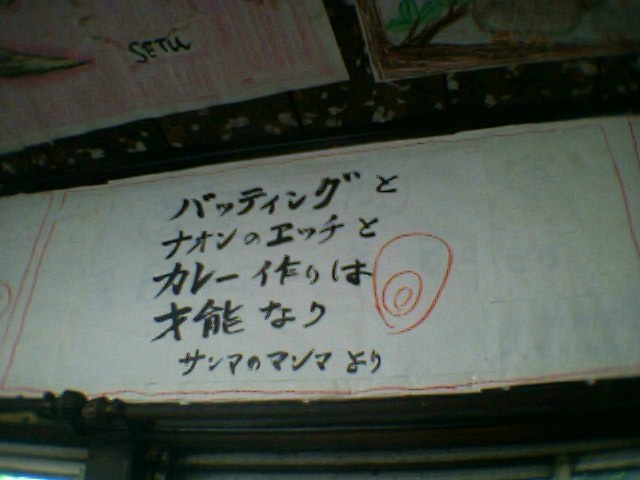 SETU
バッティングと
ナオンのエッチと
カレー作りは
才能なり
サンマのマンマより